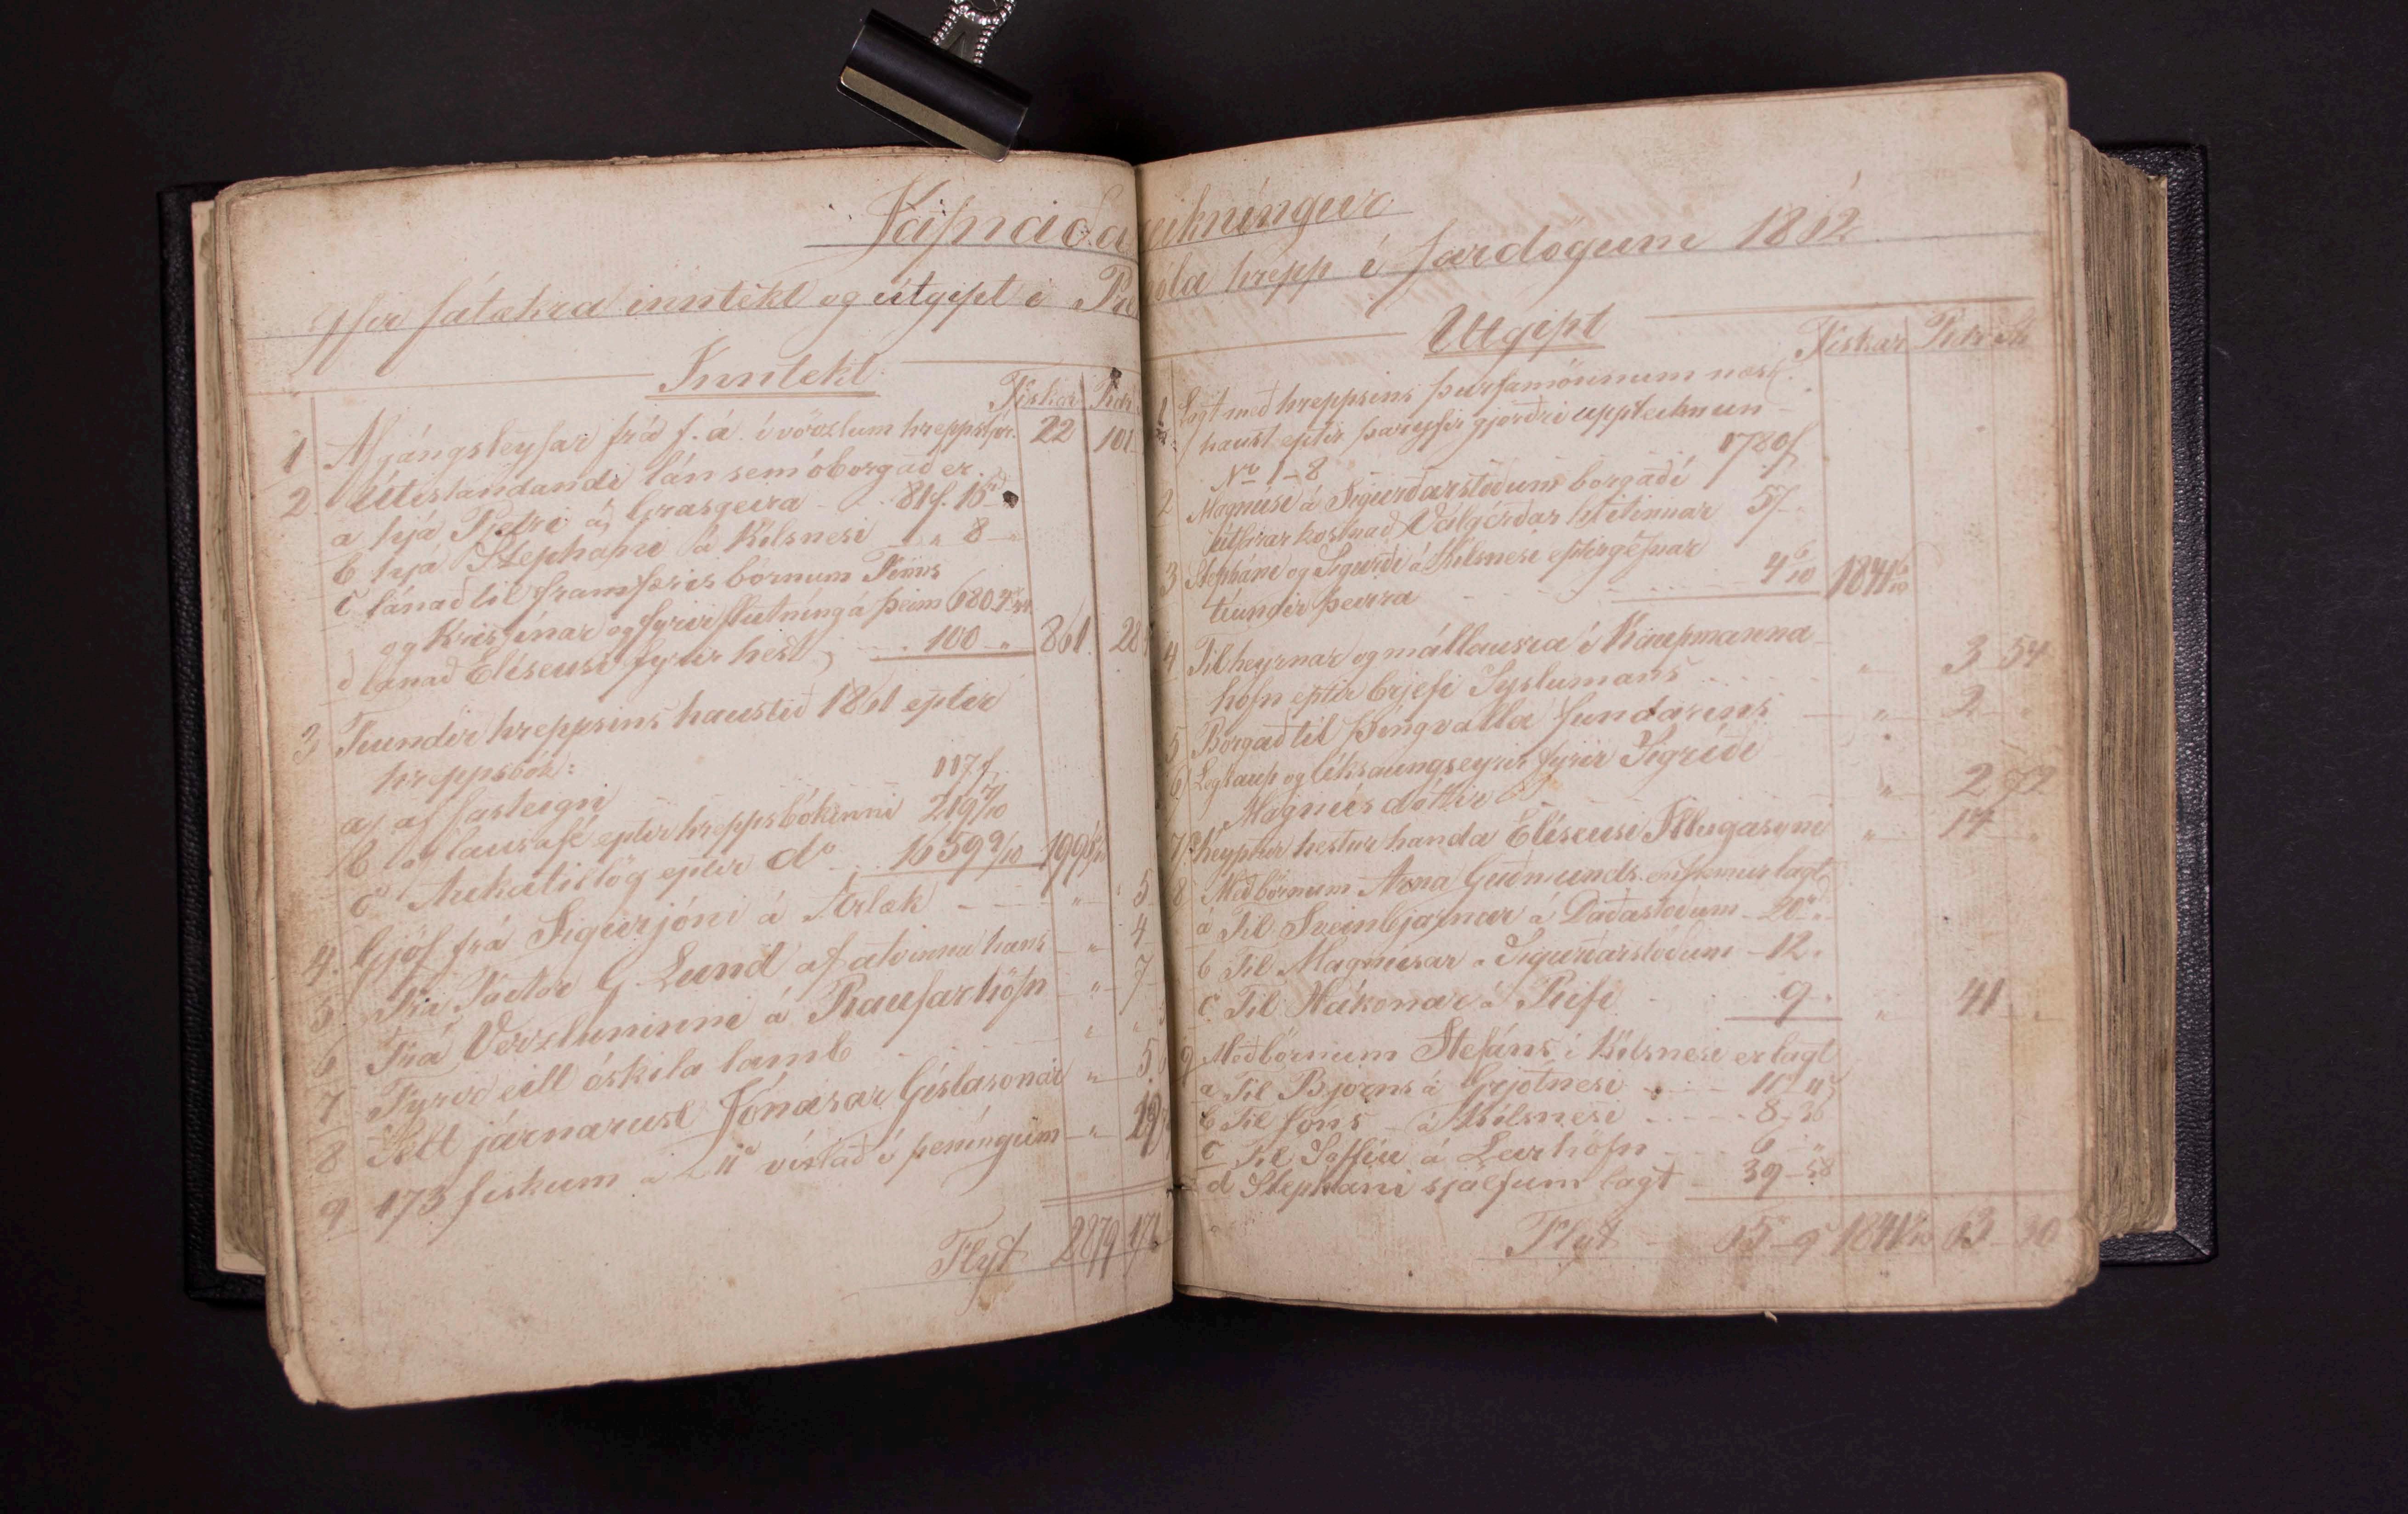 Jafnaðareikníngur
Yfir fátækra inntekt og útgipt í Presthóla hrepp í fardögum 1862
Inntekt
Fiskar Rdr
1 Afgángsleyfar frá f. á. í vörzlum hreppstjór. 22 101
2 Útistandandi lán sem óborgað er
a hjá Petri á Grasgeira 81f. 16
b hjá Stepháni á Kílsnesi " 8 "
c lánað til framfæris börnum Finns
og Kristínar og fyrir flutníng á þeim 680
d lánað Elíseusi fyrir hest 100 " 861 28
3 Tíundir hreppsins haustið 1861 eptir
hreppsbók:
a, af fasteign 117f
b af lausafé eptir hreppsbókinni 219 7/10
c Aukatillög eptir do 1659 2/10 1995 9/10
4. Gjöf frá Sigurjóni á Ærlæk " 5
5 Frá Factor G. Lund af atvinnu hans " 4
6 Frá Verzluninni á Raufarhöfn " 7
7 Fyrir eitt óskila lamb " "
8 Selt járnarusl Jónasar Gíslasonar " 5
9 173 fiskum á 11 víslað í peníngum " 19
Flyt 2879 171
Utgipt
Fiskar Rdr Sk
1 Lagt með hreppsins þurfamönnum næstl.
haust eptir þaryfir gjörðri uppteiknun
No 1-8 1780f
2 Magnúsi á Sigurðarstöðum borgað í
útfarar kostnað Valgérðar 57
3 Stepháni og Sigurði á Kílsnesi eptirgefnar
tíundir þeirra 4 6/10 1841 6/10
4 Til heyrnar og mállausra í Kaupmanna-
höfn eptir brjefi Sýslumans " 3 54
5 Borgað til Þíngvalla fundarins " 2 "
6 Legkaup og líksaungseyrir fyrir Sigríði
Magnúsdóttir " 2 72
7 keyptur hestur handa Elíseusi Illugasyni " 14 "
8 Með börnum Arna Guðmunds. ennfremur lagt
a Til Sveinbjarnar á Daðastöðum 20 "
b Til Magnúsar á Sigurðarstöðum 12 "
c Til Hákonar á Rifi 9 " " 41 "
9 Með börnum Stefáns í Kílsnesi er lagt
a Til Bjorns á Grjótnesi 11
b Til Jóns á Kílsnesi 8 36
c Til Soffíu á Leirhöfn 6 "
d Stepháni sjálfum lagt 39 58
Flyt 65 9 1841 6/10 63 30